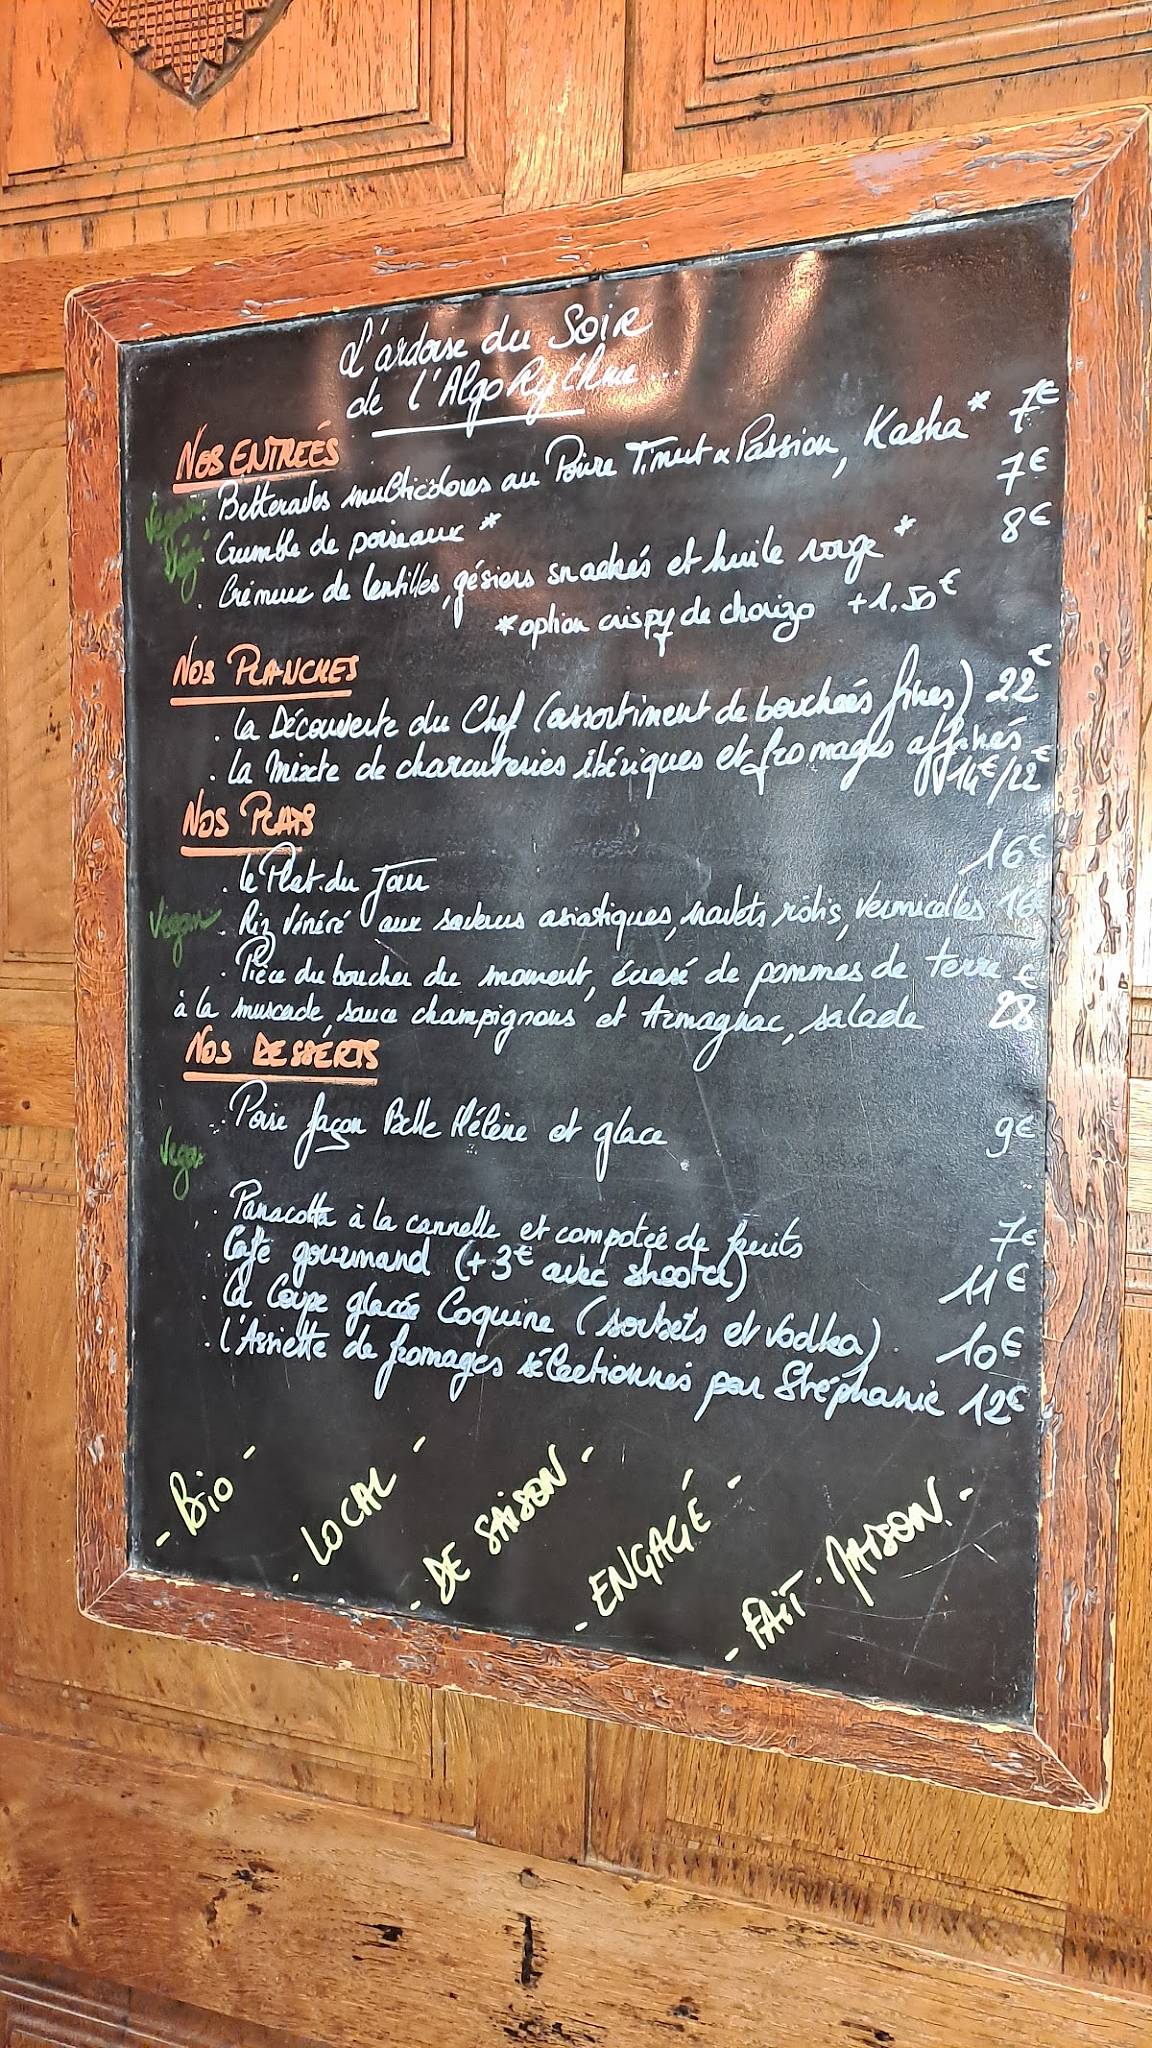 L'ardoise du SOIR
de l'AlgoRythme...
NOS ENTREÉS
Vegan . Betteraves multicolores au Poivre Timut & Passion, Kasha* 7€
Végé . Crumble de poireaux * 7€
. Crémeux de lentilles, gésiers snackés et huile rouge * 8€
*option crispy de chorizo +1.50€
NOS PLANCHES
. La Découverte du Chef (assortiment de bouchées fines) 22€
. La Mixte de charcuteries ibériques et fromages affinés
14€/22€
NOS PLATS
. Le Plat du Jour 16€
Vegan . Riz Vénéré aux saveurs asiatiques, navets rôtis, vermicelles 16€
. Pièce du boucher du moment, écrasé de pommes de terre
à la muscade, sauce champignons et Armagnac, salade 28€
NOS DESSERTS
. Poire façon Belle Hélène et glace 9€
Vegan
. Panacotta à la cannelle et compotée de fruits 7€
. Café gourmand (+3€ avec shooter) 11€
. La Coupe glacée Coquine (sorbets et vodka). 10€
. L'Assiette de fromages sélectionnés par Stéphanie 12€
- Bio -
- LOCAL -
- DE SAISON -
- ENGAGÉ -
- FAIT MAISON -